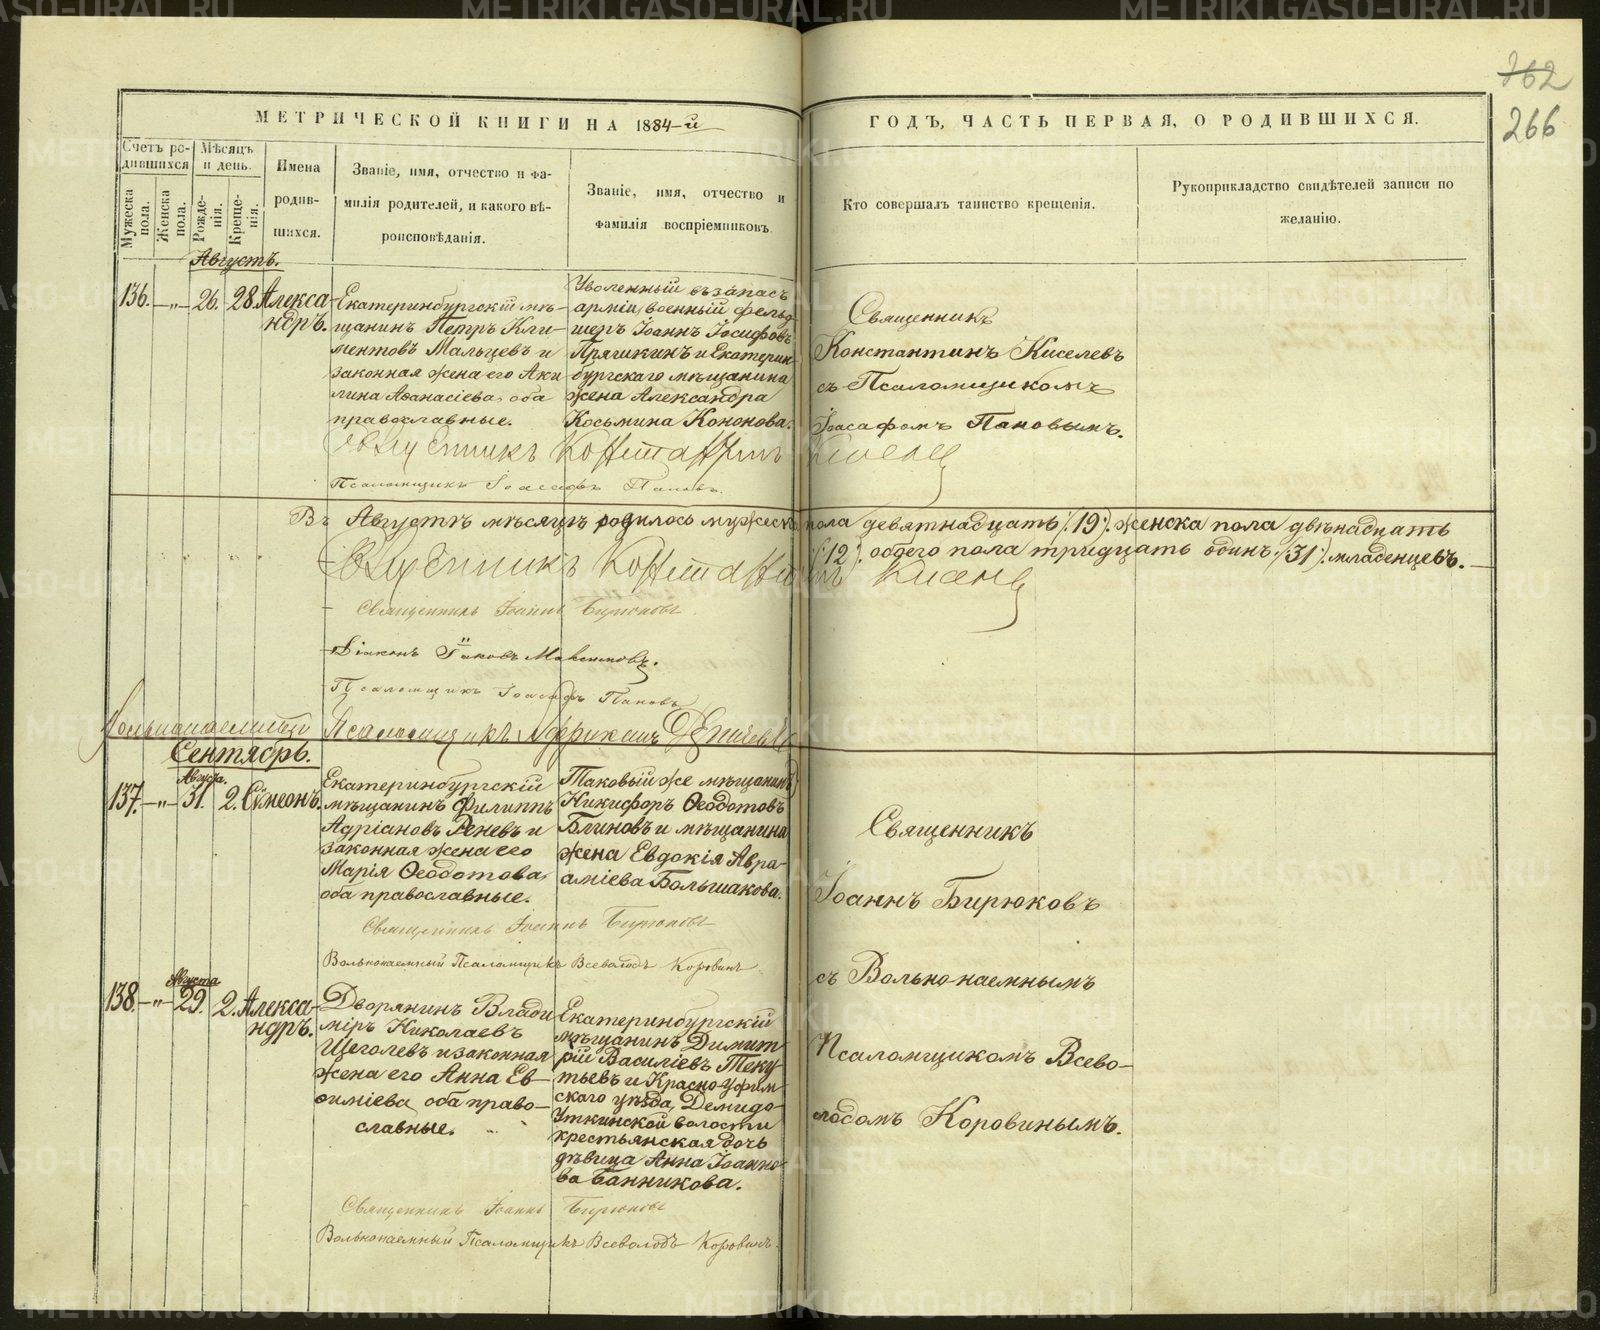 362
266
МЕТРИЧЕСКОЙ КНИГИ НА 1884-й
ГОДЪ, ЧАСТЬ ПЕРВАЯ, О РОДИВШИХСЯ.
Счетъ ро-
дившихся
Мѣсяцъ
и день.
Мужеска
пола.
Женска
пола.
Рожде-
нія.
Креще-
нія.
Имена
родив-
шихся.
Званіе, имя, отчество и фа-
милія родителей, и какого вѣ-
роисповѣданія.
Званіе, имя, отчество и
фамилія воспріемниковъ
Кто совершалъ таинство крещенія.
Рукоприкладство свидѣтелей записи по
желанію.
Августъ.
136. — „ — 26. 28. Алекса-
ндръ.
Екатеринбургскій мѣ-
щанинъ Петръ Кли-
ментовъ Мальцевъ и
законная жена его Аки
лина Аѳанасіева, оба
православные.
Уволенный въ запасъ
арміи, военный фельд
шеръ Іоаннъ Іосифовъ
Пряшкинъ и Екатерин-
бургскаго мѣщанина
жена Александра
Косьмина Кононова.
Священникъ
Константинъ Киселевъ
съ Псаломщикомъ
Іоасафомъ Пановымъ.
Священникъ Константинъ Киселевъ
Псаломщикъ Іоасафъ Пановъ.
Въ Августѣ мѣсяцѣ родилось мужеска пола девятнадцать /.19./. женска пола двѣнадцать
/.12./. обоего пола тридцать одинъ /.31./. младенцевъ.
Священникъ Константинъ Киселевъ
Священникъ Іоаннъ Бирюковъ
Діаконъ Іаковъ Максимовъ.
Псаломщикъ Іоасафъ Пановъ
Вольнонаемный Псаломщикъ
Сентябрь.
137. — „ — Августа. 31. 2. Сѵмеонъ.
Екатеринбургскій
мѣщанинъ Филиппъ
Адріановъ Реневъ и
законная жена его
Марія Ѳеодотова,
оба православные.
Таковый же мѣщанинъ
Никифоръ Ѳеодотовъ
Блиновъ и мѣщанина
жена Евдокія Авра-
аміева Большакова.
Священникъ
Іоаннъ Бирюковъ
съ Вольно-наемнымъ
Псаломщикомъ Всево-
лодомъ Коровинымъ.
Священникъ Іоаннъ Бирюковъ
Вольнонаемный Псаломщикъ Всеволодъ Коровинъ
138. — „ — Августа 29. 2. Алекса-
ндръ.
Дворянинъ Влади
міръ Николаевъ
Щеголевъ и законная
жена его Анна Ев-
ѳиміева, оба право-
славные.
Екатеринбургскій
мѣщанинъ Димит
рій Василіевъ Теку
тьевъ и Красно-Уфим-
скаго уѣзда, Демидо-
Уткинской волости
крестьянская дочь
дѣвица Анна Іоанно-
ва Банникова.
Священникъ Іоаннъ Бирюковъ
Вольнонаемный Псаломщикъ Всеволодъ Коровинъ.
METRIKI.GASO-URAL.RU